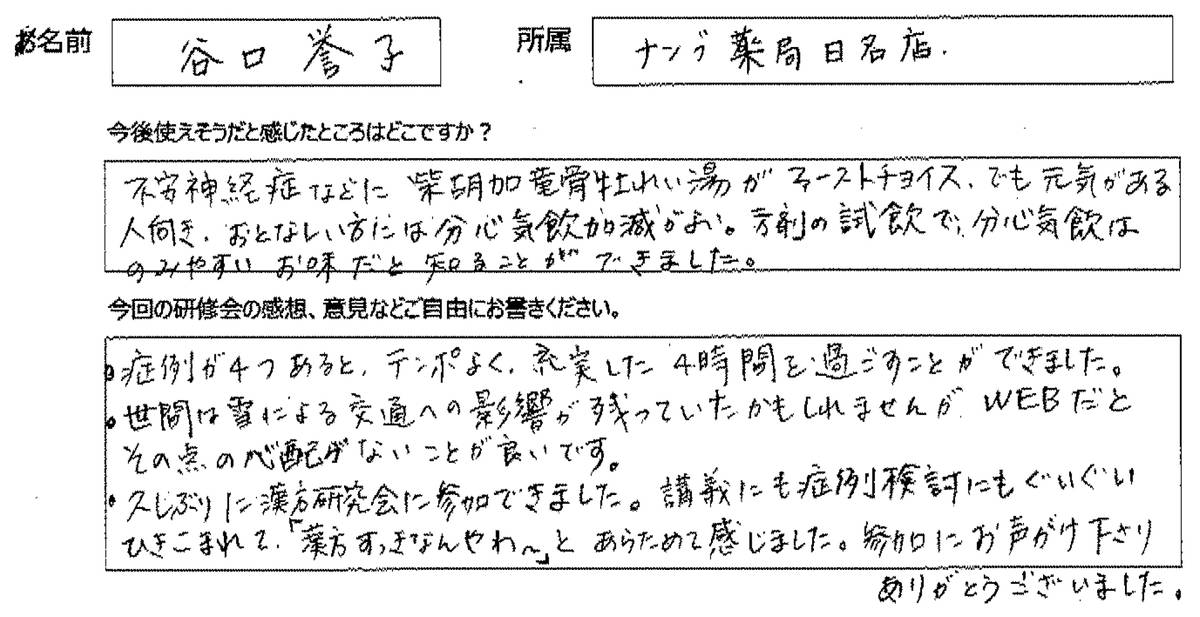 お名前 谷口 誉子 所属 ナンブ薬局日名店.
今後使えそうだと感じたところはどこですか？
不安神経症などに 柴胡加竜骨牡れい湯が ファーストチョイス、でも元気がある
人向き、おとなしい方には分心気飲加減がよい。方剤の試飲で、分心気飲は
のみやすい お味だと 知ることが できました。
今回の研修会の感想、意見などご自由にお書きください。
・症例が4つあると、テンポよく、充実した4時間を過ごすことができました。
・世間は雪による交通への影響が残っていたかもしれませんが、WEBだと
その点の心配がないことが良いです。
・久しぶりに漢方研究会に参加できました。講義にも症例検討にもぐいぐい
ひきこまれて、「漢方すっきなんやわ〜」と あらためて感じました。参加にお声がけ下さり
ありがとうございました。